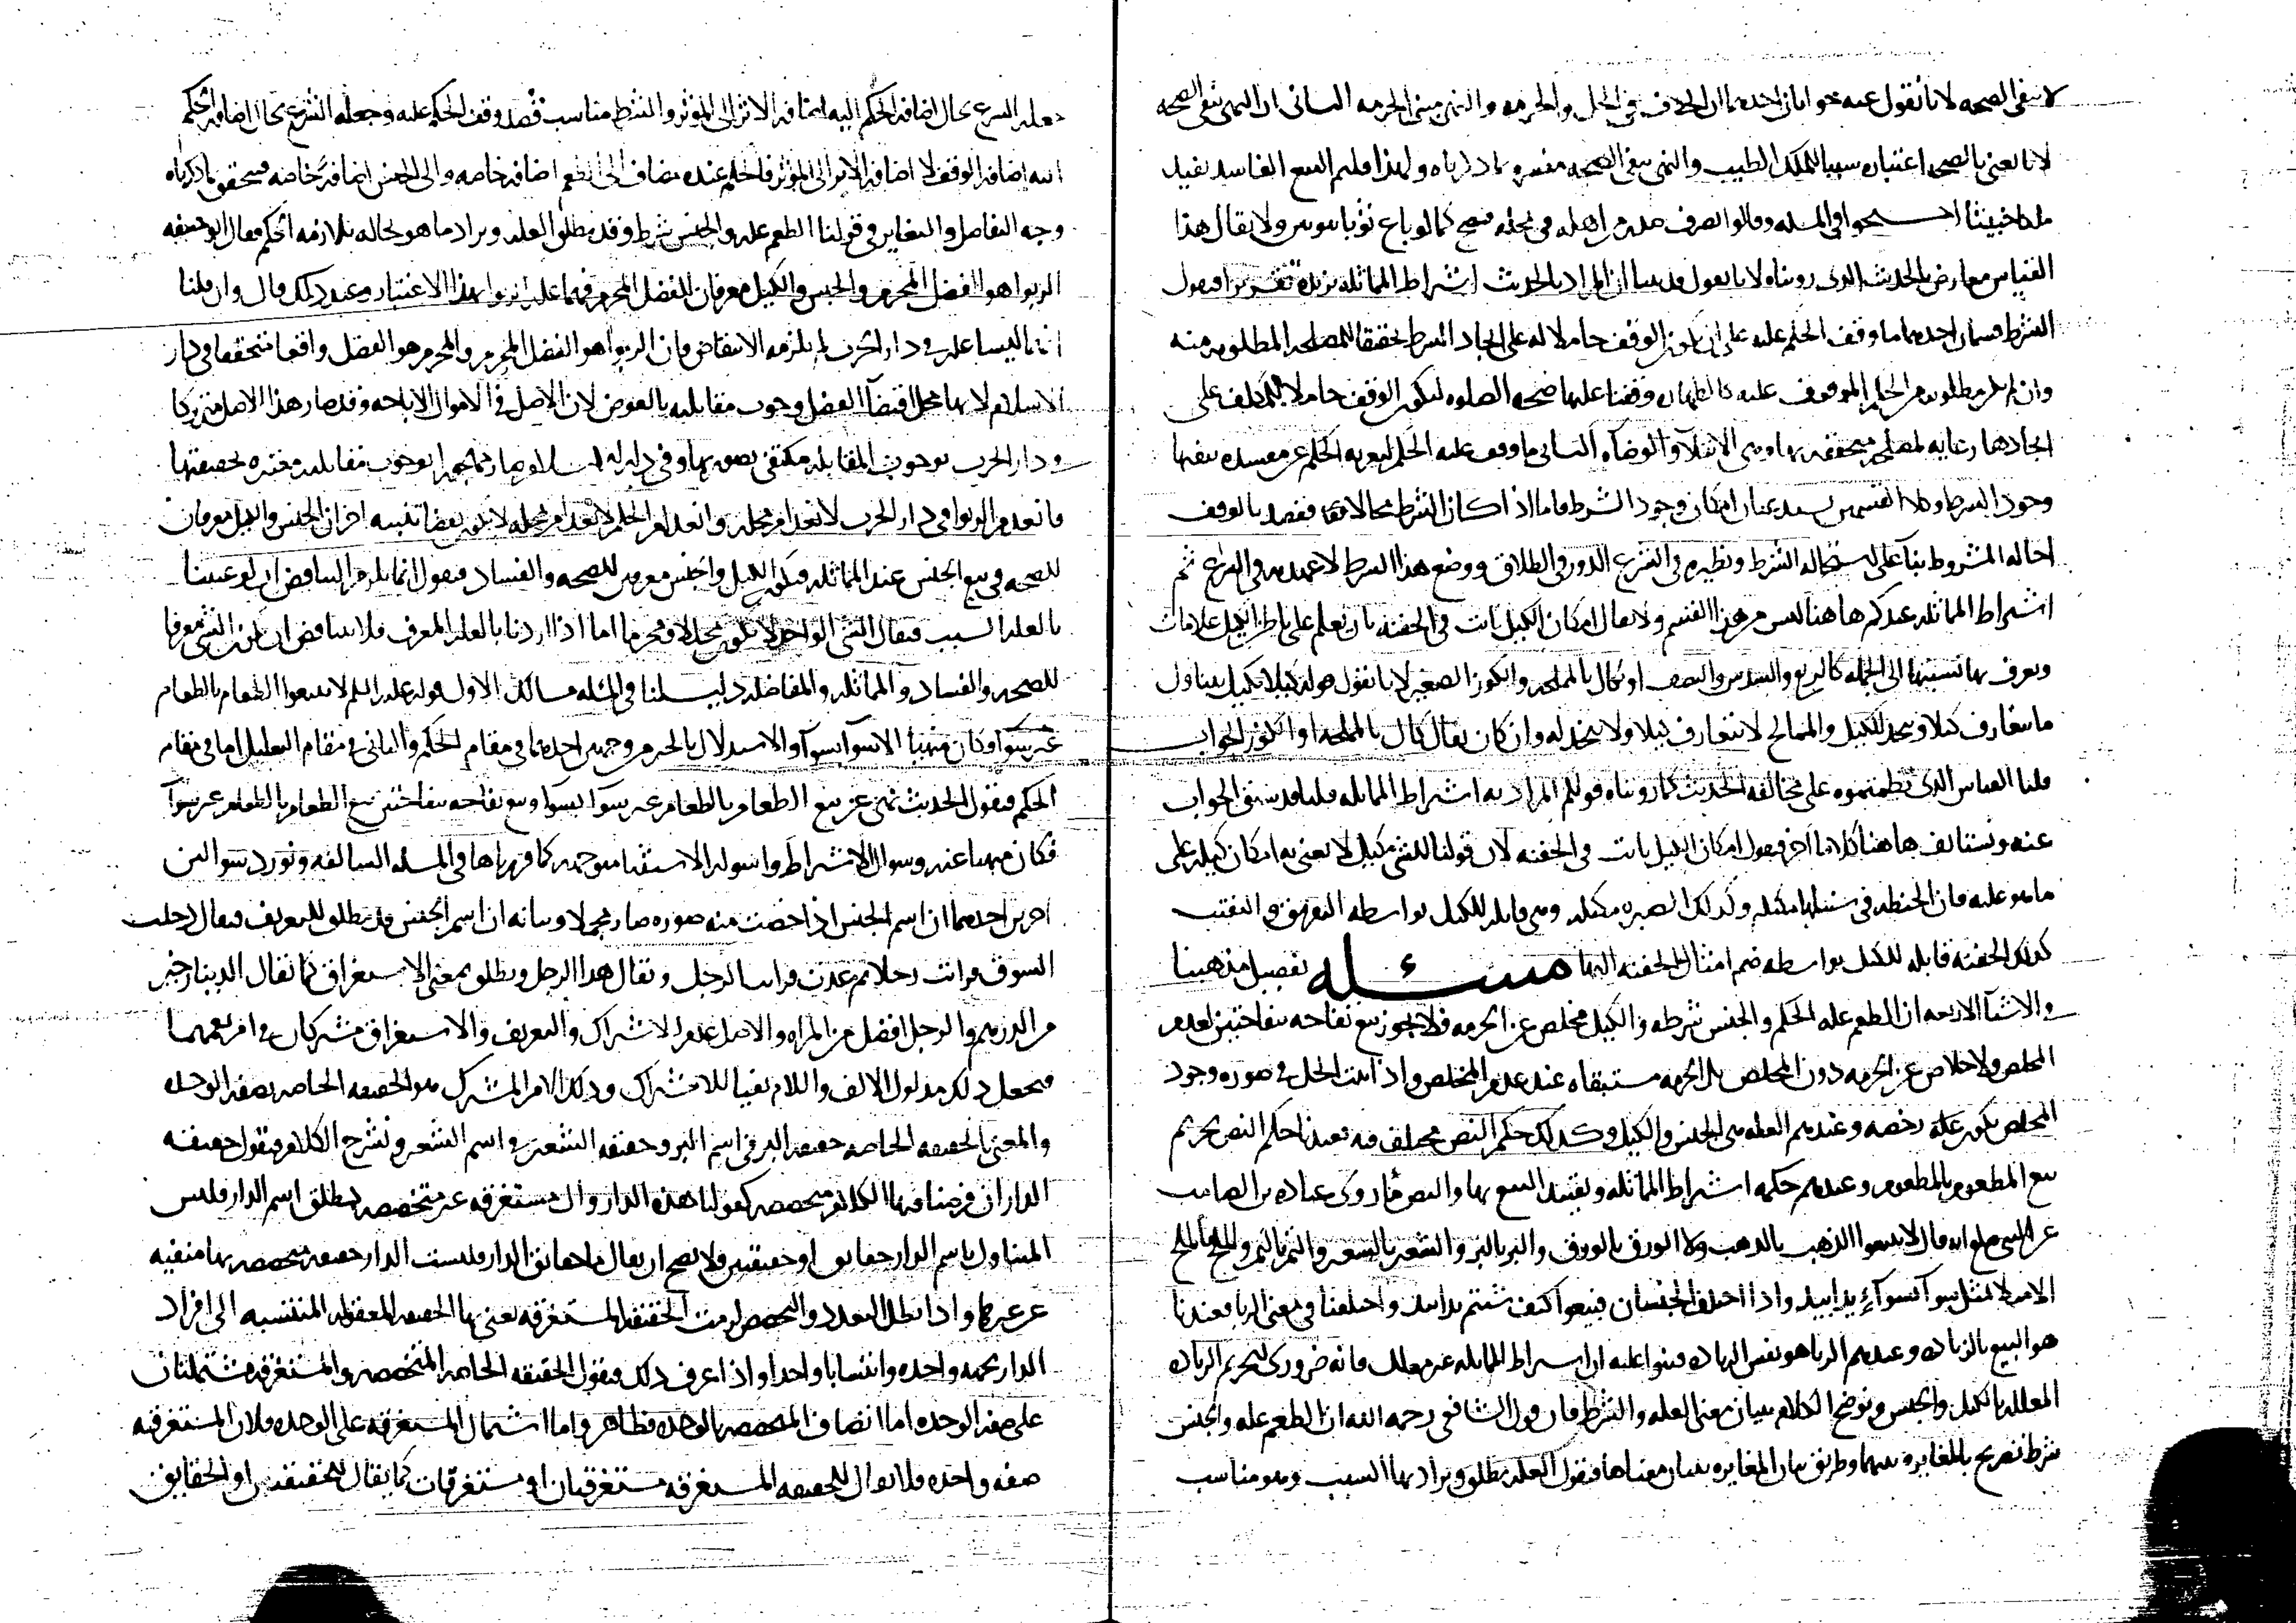 لا ينفي الصحه لانا نقول عنه جوابان احدهما ان الخلاف في الحل والحرمه والنهي مبني الحرمه الثاني ان النهي ينفي الصحه
لانا نعني بالصحه اعتباره سببا للملك الطيب والنهي ينفي الصحه مفسره بما ذكرناه ولهذا قلتم البيع الفاسد يفيد
ملكا خبيثا احتجوا في المسله وقالوا تصرف صدر من اهله في محله فصح كما لو باع ثوبا بثوبين ولا يقال هذا
القياس معارض بالحديث الذي رويناه لانا نقول قد بينا ان المراد بالحديث اشتراط المماثله نزيده تقريرا فنقول
الشرط قسمان احدهما ما وقف الحكم عليه على ان يكون الوقف حاملا له على ايجاد الشرط تحقيقا للمصلحه المطلوبه منه
وان لم يكن مطلوبه من الحكم الموقوف عليه كالطهاره وقفنا عليها صحه الصلوه ليكون الوقف حاملا للمكلف على
ايجادها رعايه لمصلحه متحققه بها وهي الابتلا والوضاه الثاني ما وقف عليه الحكم ليعريه الحكم عن مفسده ينفيها
وجود الشرط وكلا القسمين يستدعيان امكان وجود الشرط فاما اذا كان الشرط محالا فقد يقصد بالوقف
احاله المشروط بنا على استحاله الشرط ونظيره في الشرع الدور في الطلاق ووضع هذا الشرط لا عهد به في الشرع ثم
اشتراط المماثله عندكم هاهنا ليس من هذا القسم ولا يقال امكان الكيل ثابت في الحفنه بان يعلم على باطن الكيل علامات
ويعرف بها نسبتها الى الجمله كالربع والسدس والنصف او يكال بالمملحه والكوز الصغير لانا نقول قوله كيلا بكيل يتناول
ما يتعارف كيلا ويتخذ للكيل والممالح لا يتعارف كيلا ولا يتخذ له وان كان يقال كال بالمملحه او الكوز الجواب
قلنا القياس الذي نظمتموه على مخالفه الحديث كما رويناه قولكم المراد به اشتراط المماثله قلنا قد سبق الجواب
عنه ونستانف هاهنا كلاما اخر فنقول امكان الكيل ثابت في الحفنه لان قولنا للشي مكيل لا نعني به امكان كيله على
ما هو عليه فان الحنطه في سنبلها مكيله وكذلك الصبره مكيله وهي قابله للكيل بواسطه التفريق والتفتيت
كذلك الحفنه قابله للكيل بواسطه ضم امثال الحفنه اليها مسئله تفصيل مذهبنا
في الاشيا الاربعه ان الطعم عله الحكم والجنس شرطه والكيل مخلص عن الحرمه فلا يجوز بيع تفاحه بتفاحتين لعدم
المخلص ولا خلاص عن الحرمه دون المخلص بل الحرمه مستبقاه عند عدم المخلص واذا ثبت الحل في صوره وجود
المخلص يكون عله رخصه وعندهم العله هي الجنس والكيل وكذلك حكم النص مختلف فيه فعندنا حكم النص تحريم
بيع المطعوم بالمطعوم وعندهم حكمه اشتراط المماثله وتقييد البيع بها والنص ما روى عباده بن الصامت
عن النبي صلوات قال لا تبيعوا الذهب بالذهب ولا الورق بالورق والبر بالبر والشعير بالشعير والتمر بالتمر والملح بالملح
الا مثلا بمثل سوا بسواء يدا بيد واذا اختلف الجنسان فبيعوا كيف شئتم يدا بيد واختلفنا في معنى الربا فعندنا
هو البيع بالزياده وعندهم الربا هو نفس الزياده فبنوا عليه ان اشتراط المماثله غير معلل فانه ضروري لتحريم الزياده
المعلله بالكيل والجنس ونوضح الكلام ببيان معنى العله والشرط فان قول الشافعي رحمه الله ان الطعم عله والجنس
شرط تصريح بالمغايره بينهما وطريق بيان المغايره بيان معناها فنقول العله تطلق ويراد بها السبب وهو مناسب
جعله الشرع بحال اضافه الحكم اليه اضافه الاثر الى المؤثر والشرط مناسب قصد وقف الحكم عليه وجعله الشرع بحال اضافه الحكم
اليه اضافه الوقف لا اضافه الاثر الى المؤثر فالحكم عنده مضاف الى الطعم اضافه خاصه والى الجنس اضافه خاصه فيتحقق بما ذكرناه
وجه التفاصل والتغاير في قولنا الطعم عله والجنس شرط وقد يطلق العله ويراد ما هو بحاله يلازمه الحكم فقال ابو حنيفه
الربوا هو الفضل المحرم والجنس والكيل معرفان للفضل المحرم فهما عله الربوا بهذا الاعتبار وعند ذلك قال وان قلنا
انهما ليسا عله في دار الحرب لم يلزمه الانتقاض فان الربوا هو الفضل المحرم والمحرم هو الفضل واقعا متحققا في دار
الاسلام لانها محل اقتضا الفضل وجوب مقابلته بالعوض لان الاصل في الاموال الاباحه وقد صار هذا الاصل متروكا
في دار الحرب بوجوب المقابله مكتفى بصورتها وفي دار الاسلام صار بوجوب مقابله معتبره بحقيقتها
فانعدم الربوا في دار الحرب لانعدام محله وانعدام الحكم لانعدام محله لا يكون نقضا تنبيه اقران الجنس والكيل معرفان
للصحه في بيع الجنس عند المماثله فيكون الكيل والجنس معرفين للصحه والفساد فنقول انما يلزم التناقض ان لو عنينا
بالعله السبب فيقال الشي الواحد لا يكون محللا ومحرما اما اذا اردنا بالعله المعرف فلا تناقض ان يكون الشي معرفا
للصحه والفساد والمماثله والمفاضله دليلنا في المسله مسالك الاول قوله عليه السلم لا تبيعوا الطعام بالطعام
الا سوا بسوا والاستدلال بالخبر من وجهين احدهما في مقام الحكم والثاني في مقام التعليل اما في مقام
الحكم فنقول الحديث نهى عن بيع الطعام بالطعام غير سوا بسوا وبيع تفاحه بتفاحتين بيع الطعام بالطعام غير سوا
فكان منهيا عنه وسوال الاشتراط واسوله الاستثنا متوجهه كما قررناها في المسله السالفه ونورد سوالين
اخرين احدهما ان اسم الجنس اذا خصت منه صوره صار مجملا وبيانه ان اسم الجنس قد يطلق للتعريف فيقال دخلت
السوق فرايت رجلا ثم عدت فرايت الرجل ويقال هذا الرجل ويطلق بمعنى الاستغراق كما يقال الدينار خير
من الدرهم والرجل افضل من المراه والاصل عدم الاشتراك والتعريف والاستغراق مشتركان في امر يعمهما
فيجعل ذلك مدلول الالف واللام نفيا للاشتراك وذلك الامر المشترك هو الحقيقه الخاصه بصفه الوحده
والمعني بالحقيقه الخاصه حقيقه البر في اسم البر وحقيقه الشعير في اسم الشعير ونشرح الكلام فنقول حقيقه
الدار ان فرضنا فيها الكلام متخصصه كقولنا هذه الدار وان مستغرقه غير متخصصه يطلق اسم الدار فليس
المتناول باسم الدار حقايق او حقيقتين ولا يصح ان يقال ما هاتان الدار فليست الدار حقيقه متخصصه بها منفيه
عن غيرها واذا بطل التعدد والتخصص لزمت الحقيقه المستغرقه نعني بها الحقيقه المعقوله المنتسبه الى افراد
الدار بجهه واحده وانتسابا واحدا واذا عرف ذلك فنقول الحقيقه الخاصه المتخصصه والمستغرقه مشتملتان
على صفه الوحده اما اتصاف المتخصصه بالوحده فظاهر واما اشتمال المستغرقه على الوحده فلان المستغرقه
صفه واحده فلا يقال للحقيقه المستغرقه مستغرقتان او مستغرقات كما يقال للحقيقتين او الحقايق